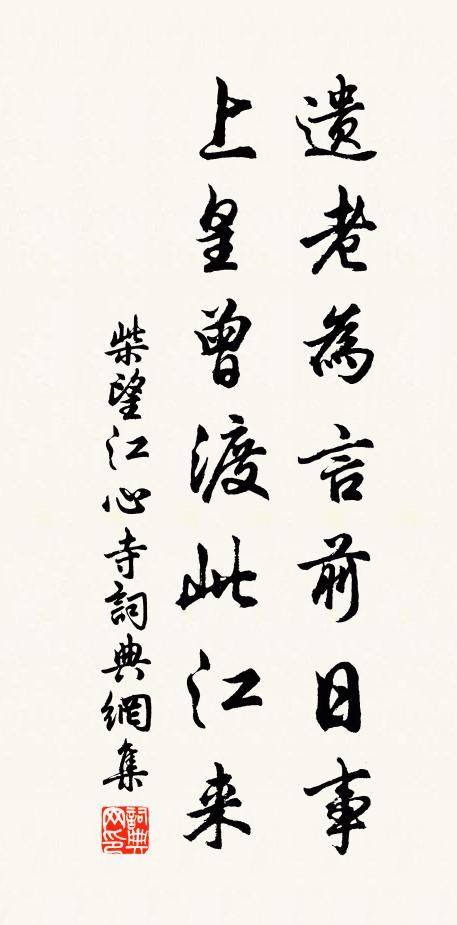 遺老為言前日事
上皇曾渡此江来
柴望江心寺詞典網集
詞典网印